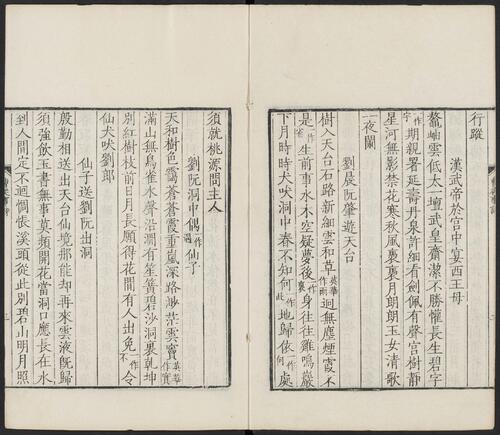 行蹤
漢武帝於宮中宴西王母
鼇岫雲低太一壇武皇齋潔不勝懽長生碧字
一作宇期親署延壽丹泉許細看劍佩有聲宮樹靜
星河無影禁花寒秋風裊裊月朗朗玉女清歌
一夜闌
劉晨阮肇遊天台
樹入天台石路新細雲和草英華作雨迥無塵煙霞不
是一作省生前事水木空疑夢後一作裏身往往雞鳴巖
下月時時犬吠洞中春不知何一作此地歸依一作何處
須就桃源問主人
劉阮洞中偶一作遇仙子
天和樹色靄蒼蒼霞重嵐深路渺茫雲竇英華作實
滿山無鳥雀水聲沿澗有笙簧碧沙洞裏乾坤
別紅樹枝前日月長願得花間有人出免一作不令
仙犬吠劉郎
仙子送劉阮出洞
殷勤相送出天台仙境那能却再來雲液既歸
須強飲玉書無事莫頻開花當洞口應長在水
到人間定不迴惆悵溪頭從此別碧山明月照